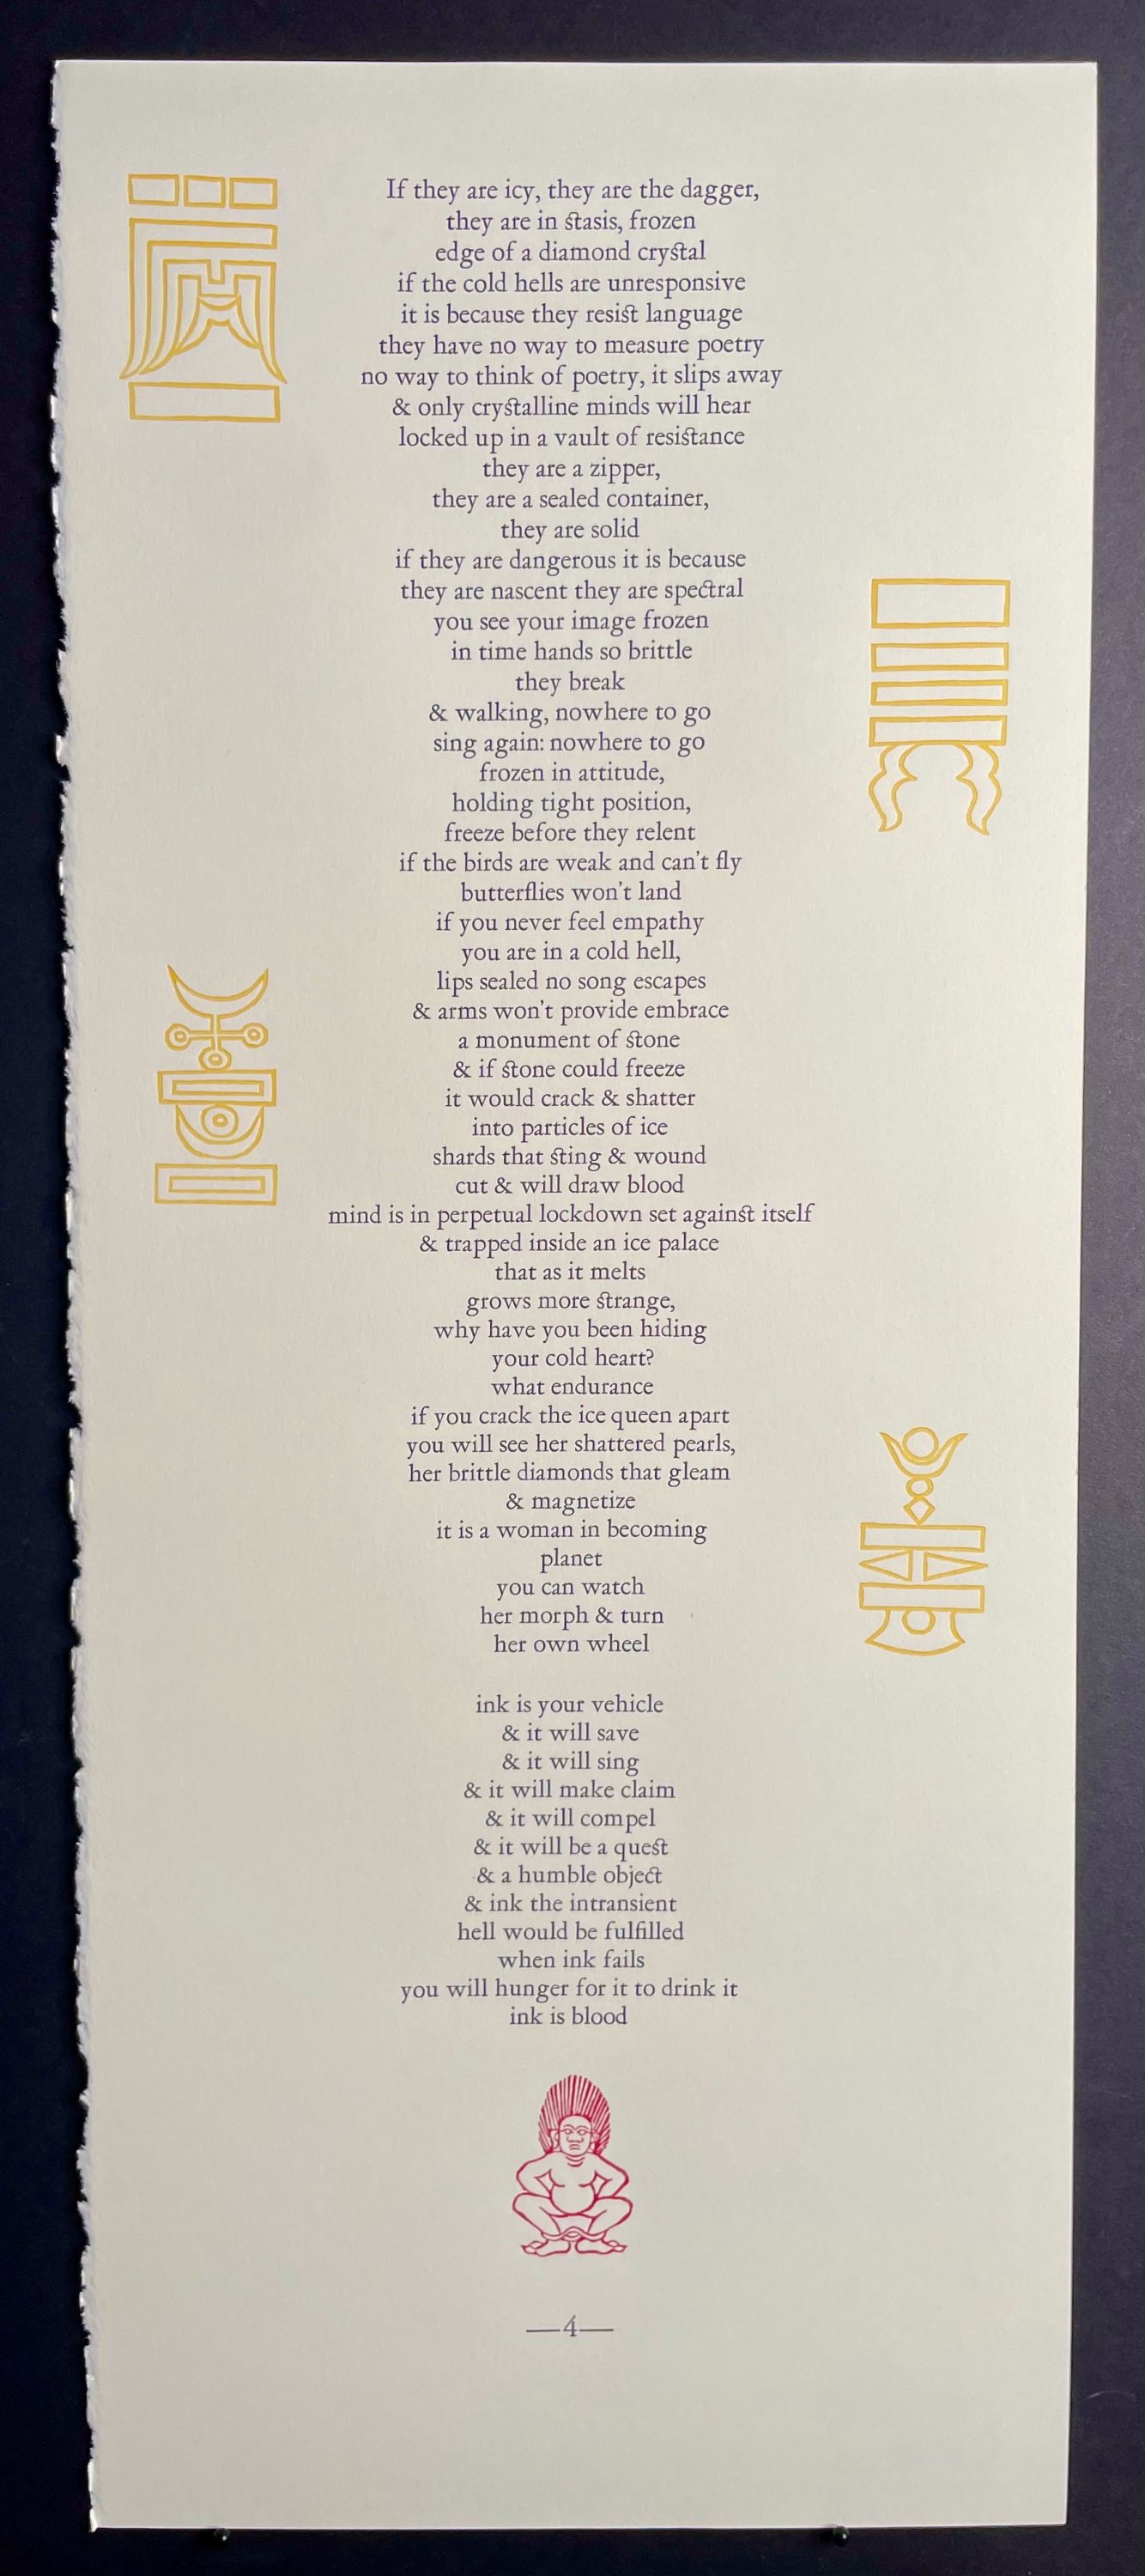 If they are icy, they are the dagger,
they are in stasis, frozen
edge of a diamond crystal
if the cold hells are unresponsive
it is because they resist language
they have no way to measure poetry
no way to think of poetry, it slips away
& only crystalline minds will hear
locked up in a vault of resistance
they are a zipper,
they are a sealed container,
they are solid
if they are dangerous it is because
they are nascent they are spectral
you see your image frozen
in time hands so brittle
they break
& walking, nowhere to go
sing again: nowhere to go
frozen in attitude,
holding tight position,
freeze before they relent
if the birds are weak and can't fly
butterflies won't land
if you never feel empathy
you are in a cold hell,
lips sealed no song escapes
& arms won't provide embrace
a monument of stone
& if stone could freeze
it would crack & shatter
into particles of ice
shards that sting & wound
cut & will draw blood
mind is in perpetual lockdown set against itself
& trapped inside an ice palace
that as it melts
grows more strange,
why have you been hiding
your cold heart?
what endurance
if you crack the ice queen apart
you will see her shattered pearls,
her brittle diamonds that gleam
& magnetize
it is a woman in becoming
planet
you can watch
her morph & turn
her own wheel
ink is your vehicle
& it will save
& it will sing
& it will make claim
& it will compel
& it will be a quest
& a humble object
& ink the intransient
hell would be fulfilled
when ink fails
you will hunger for it to drink it
ink is blood
—4—